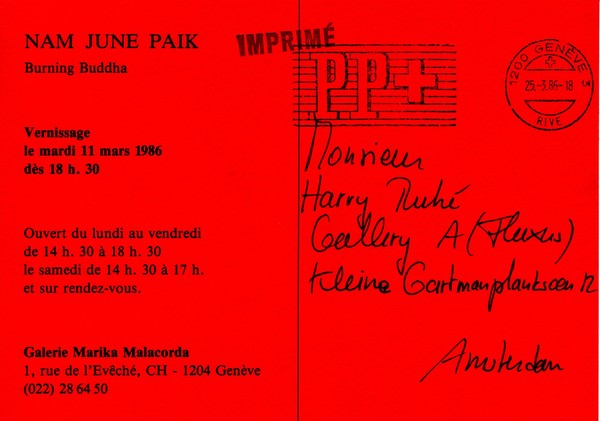 NAM JUNE PAIK
Burning Buddha
Vernissage
le mardi 11 mars 1986
dès 18 h. 30
Ouvert du lundi au vendredi
de 14 h. 30 à 18 h. 30
le samedi de 14 h. 30 à 17 h.
et sur rendez-vous.
Galerie Marika Malacorda
1, rue de l'Evêché, CH - 1204 Genève
(022) 28 64 50
IMPRIMÉ
PP+
1200 GENÈVE
25.-3.86-18
RIVE
Monsieur
Harry Ruhé
Gallery A (Fluxus)
Kleine Gartmanplantsoen 12
Amsterdam